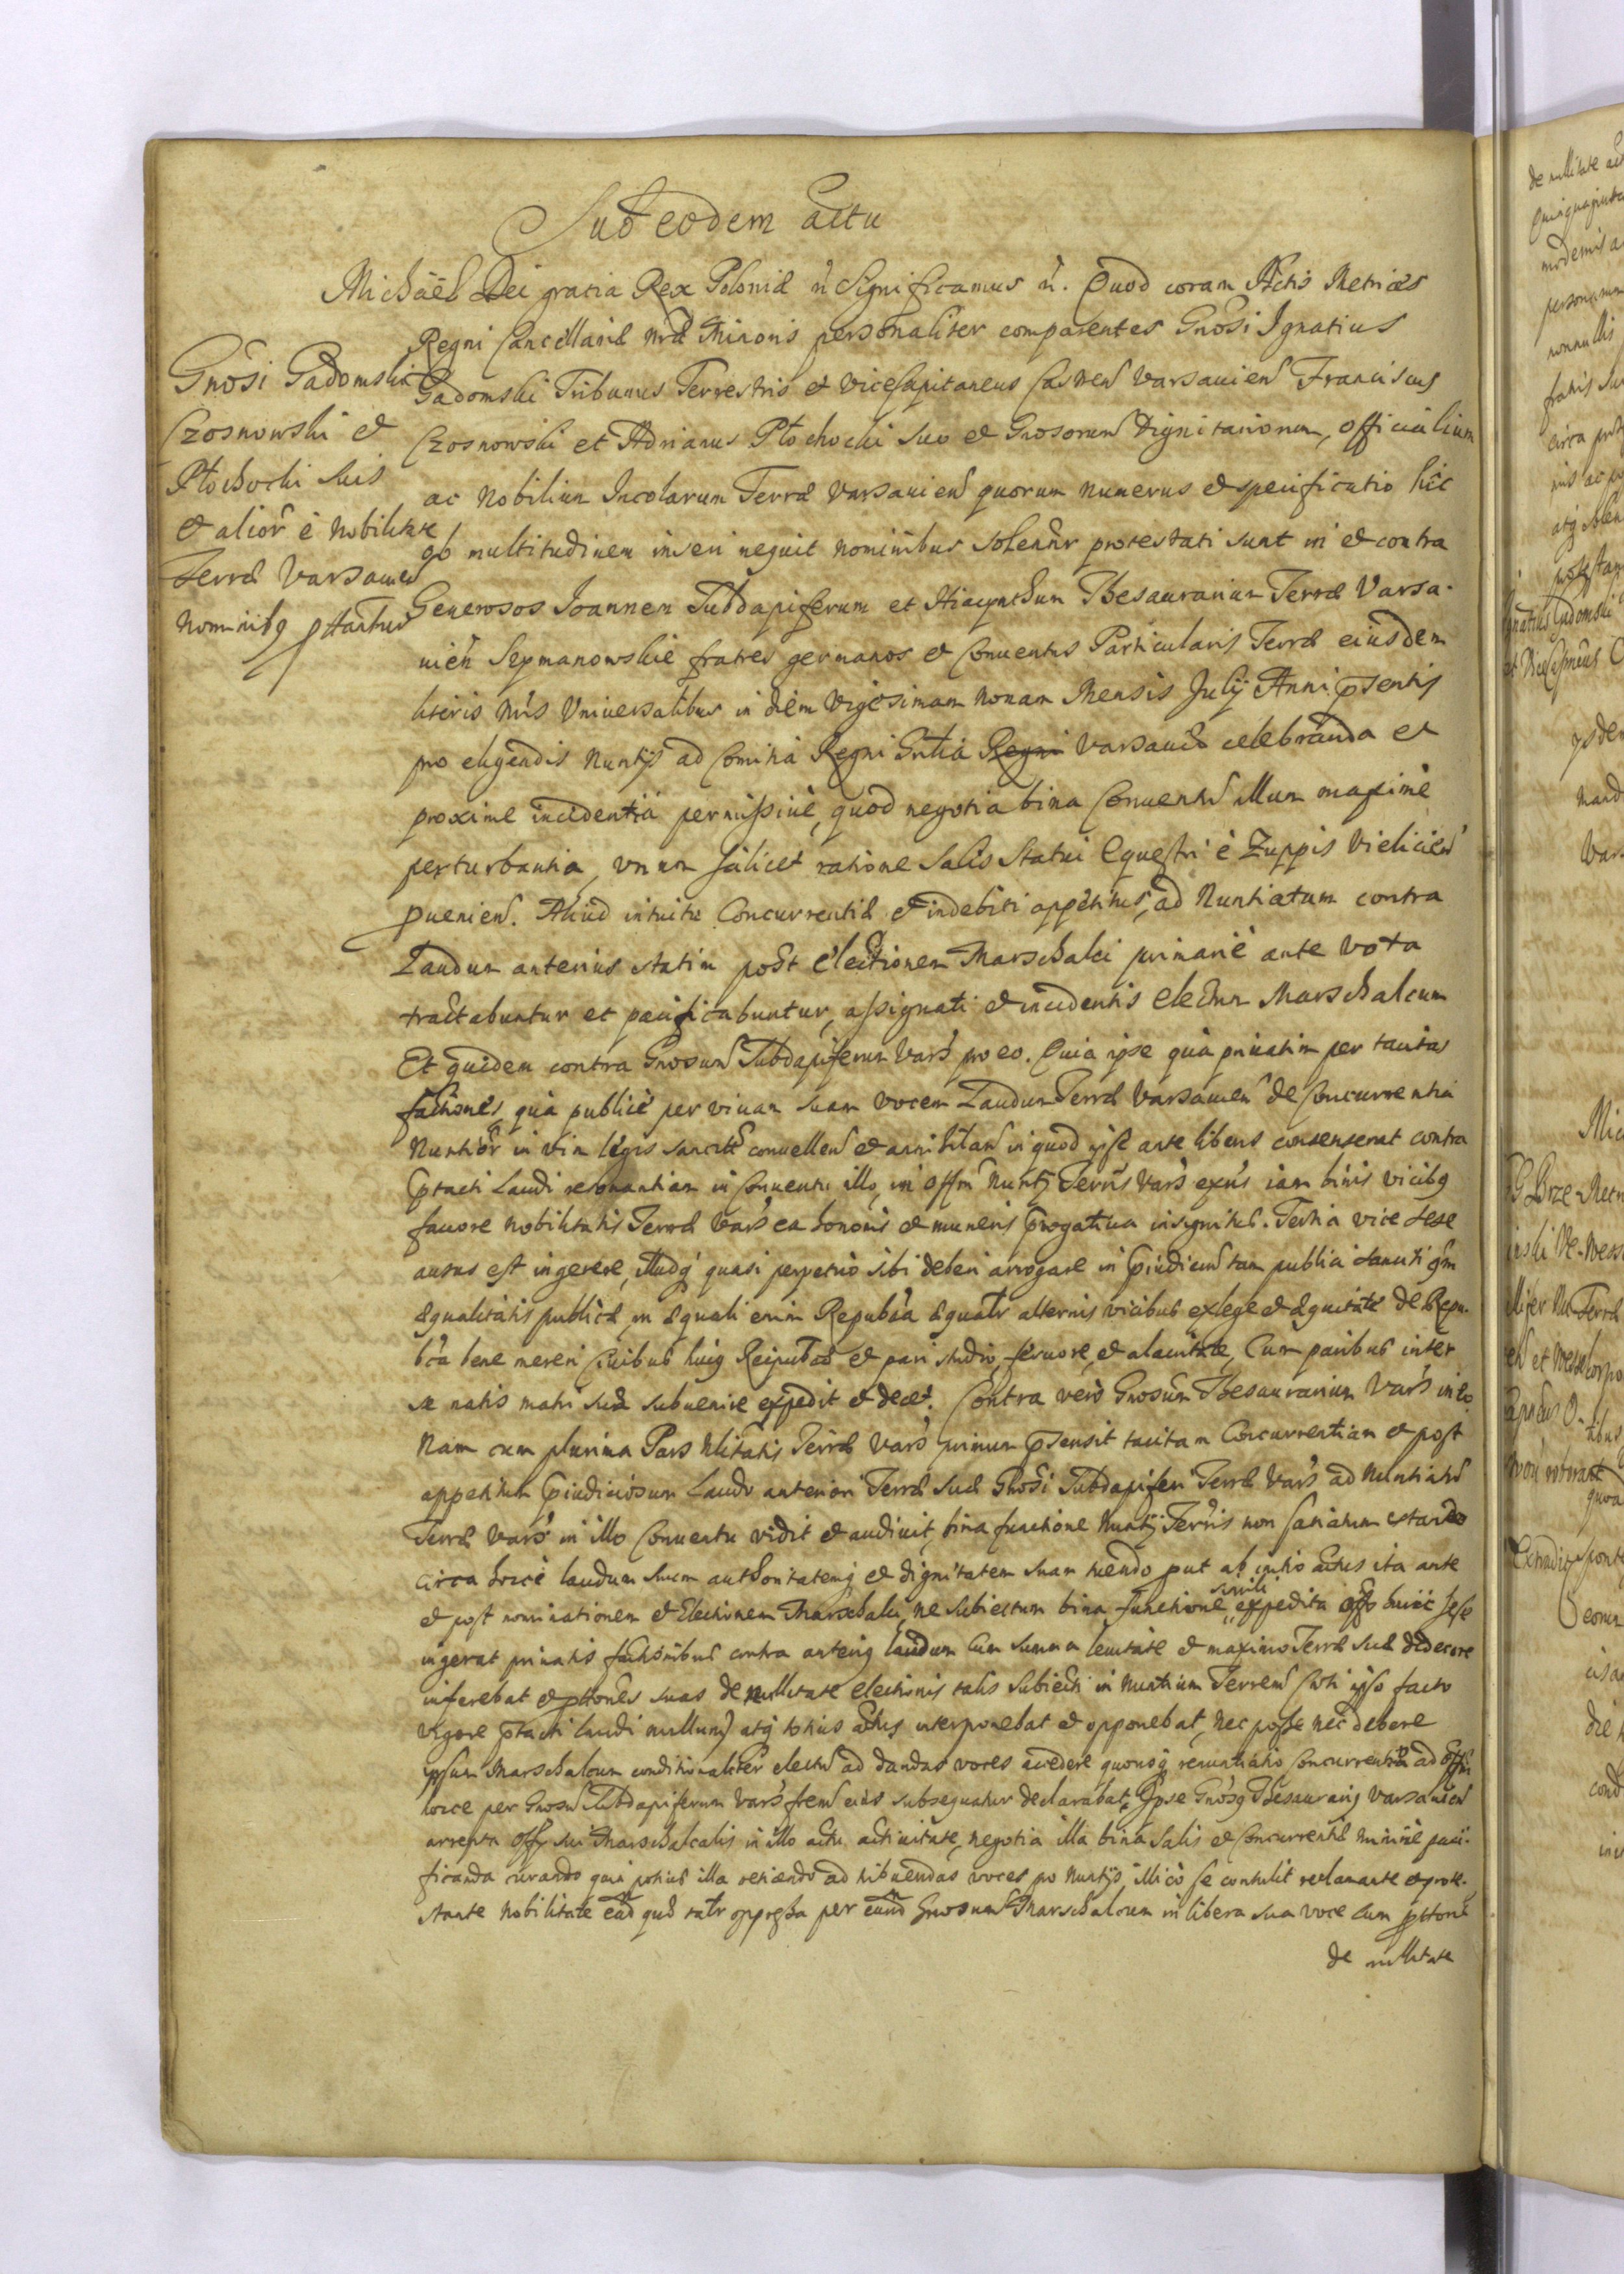 Sub eodem actu
Michaël Dei gratia Rex Poloniæ &c Significamus &c. Quod coram Actis Metrices
Regni Cancellariæ nræ Minoris personaliter comparentes Gnosi Ignatius
Gadomski Tribunus Terrestris et ViceCapitaneus Castren Varsavien Franciscus
Czosnowski et Adrianus Płochocki suo et Gnosorum Dignitariorum, officialium
ac Nobilium Incolarum Terræ Varsavien quorum numerus et specificatio hic
ob multitudinem inseri nequit nominibus solenr protestati sunt in et contra
Generosos Joannem Subdapiferum et Hiacynthum Thesaurarium Terræ Varsa-
vien Szymanowskie fratres germanos et Conventus Particularis Terræ eiusdem
literis nris Universalibus in diem Vigesimam nonam Mensis Julij Anni pñtis
pro eligendis Nuntijs ad Comitia Regni Gnlia Regni Varsaviæ celebranda et
proxime incidentia permissivè, quod negotia bina Conventū illum maximè
perturbantia, unum scilicet ratione Salis Statui Equestri è Zuppis Vielicien
pvenien. Aliud intuitu Concurrentiæ et indebiti appetitus, ad Nuntiatum contra
Laudum anterius statim post electionem Marschalci primariè ante vota
tractabuntur et pacificabuntur, assignati et incidentis electum Marschalcum
Et quidem contra Gnosum Subdapiferum Vars pro eo. Quia ipse quà privatim per tacitas
factiones, quà publicè per vivam suam vocem Laudum Terræ Varsavien de Concurrentia
Nuntior in vim legis sancitū convellen et annihilan in quod ipse ante libens consenserat contra
ptacti Laudi resonantiam in Conventu illo, in offm Nuntij Terris Vars exns iam binis vicibq
favore Nobilitatis Terræ Vars ea honoris et muneris progativa insignitus. Tertia vice sese
ausus est ingerere, illudq quasi perpetuò sibi deberi arrogare in pindicium tam publici
æqualitatis publicæ, in æquali enim Republca æqualr alternis vicibus ex lege et æquitate de Repu-
blca bene mereri Civibus huiq Reipublcæ et pari studio, fervore, et alacritate, Cum paribus inter
se natis matri suæ subvenire expedit et decet. Contra verò Gnosum Thesaurarium Vars in eo
Nam cum plurima Pars Nlitatis Terræ Vars primum psensit tacitam Concurrentiam et post
appetitum piudiciosum Laudo anteriori Terræ suæ Gnosi Subdapiferi Terræ Vars ad Nuntiatū
Terræ Vars in illo Conventu vidit et audivit, bina functione Nuntij Terris non satiatum stando
circa hocce laudum suum authoritatemq et dignitatem suam tuendo put ab initio actus ita ante
et post nominationem et Electionem Marschalci, ne subiectum bina functione simili expedita offo huic sese
ingerat privatis factionibus contra anteriq laudum Cum summa levitate et maximo Terræ suæ dedecore
inferebat et pttones suas de nullitate electionis talis subiecti in Nuntium Terren Cwti ipso facto
vigore ptacti laudi nullum) atq totius actus interponebat et opponebat, nec posse nec debere
ipsum Marschalcum conditionaliter electū ad dandas voces accedere quousq renuntiatio Concurrentiæ ad offm
hocce per Gnosū Subdapiferum Vars frem eius subsequatur declarabat, Ipse Gnosq Thesaurariq Varsavien
arrepta offij sui Marschalcalis in illo actu activitate, negotia illa bina Salis et Concurrentiæ minimè paci-
ficanda curando quin potius illa reticendo ad tribuendas voces po Nuntijs, illicò se contulit reclamante et prote-
stante Nobilitate ead quæ talr oppressa per eund Gnosum Marschalcum in libera sua voce cum pttone
de nullitate
Gnosi Gadomski
Czosnowski et
Płochocki suis
et alior è Nobilitate
Terræ Varsavien
Nominibq pttantur